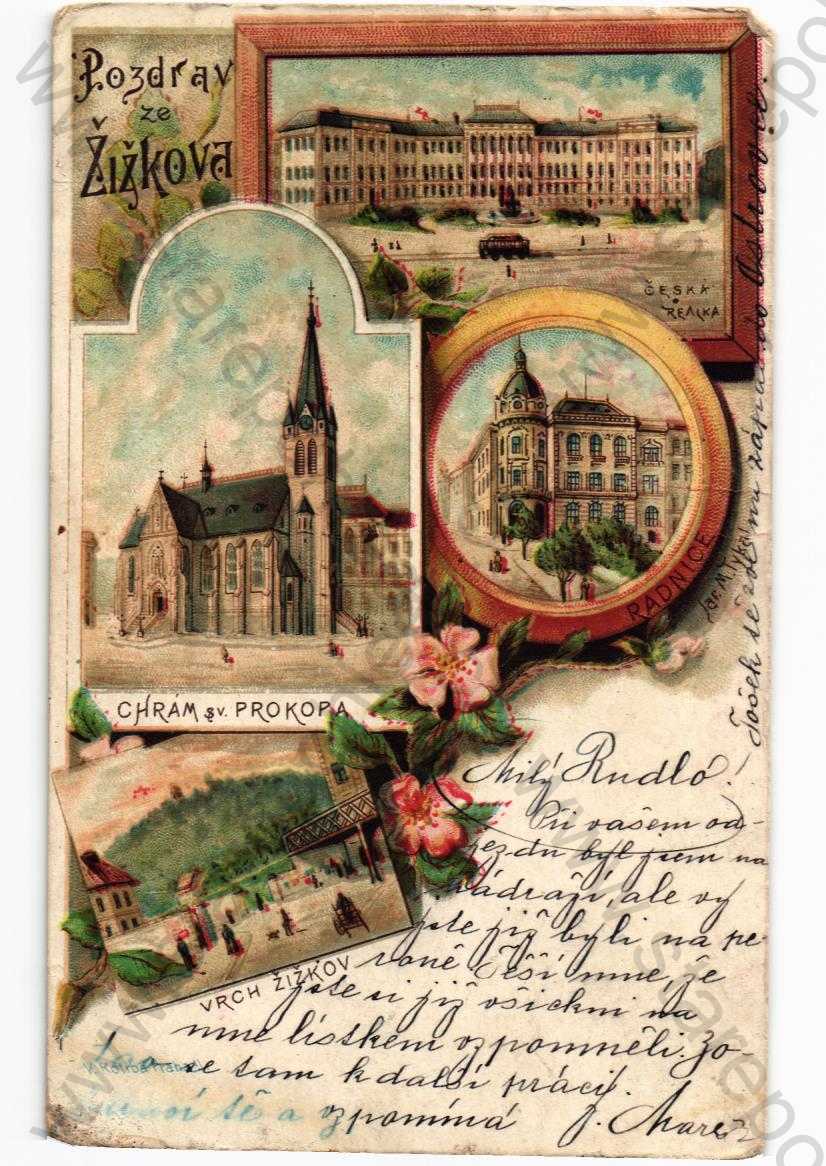 Pozdrav
ze
Žižkova
ČESKÁ
REALKA
RADNICE
CHRÁM sv. PROKOPA
VRCH ŽIŽKOV
Milý Rudló!
Při vašem od-
jezdu byl jsem na
nádraží, ale vy
jste již byli na pe-
roně Těší mne, že
jste si již všickni na
mne lístkem vzpomněli. Zo-
ve tam k další práci!
a vzpomíná J. Mareš
Tošek se zde na
do Ostrova.
www.starepohledy